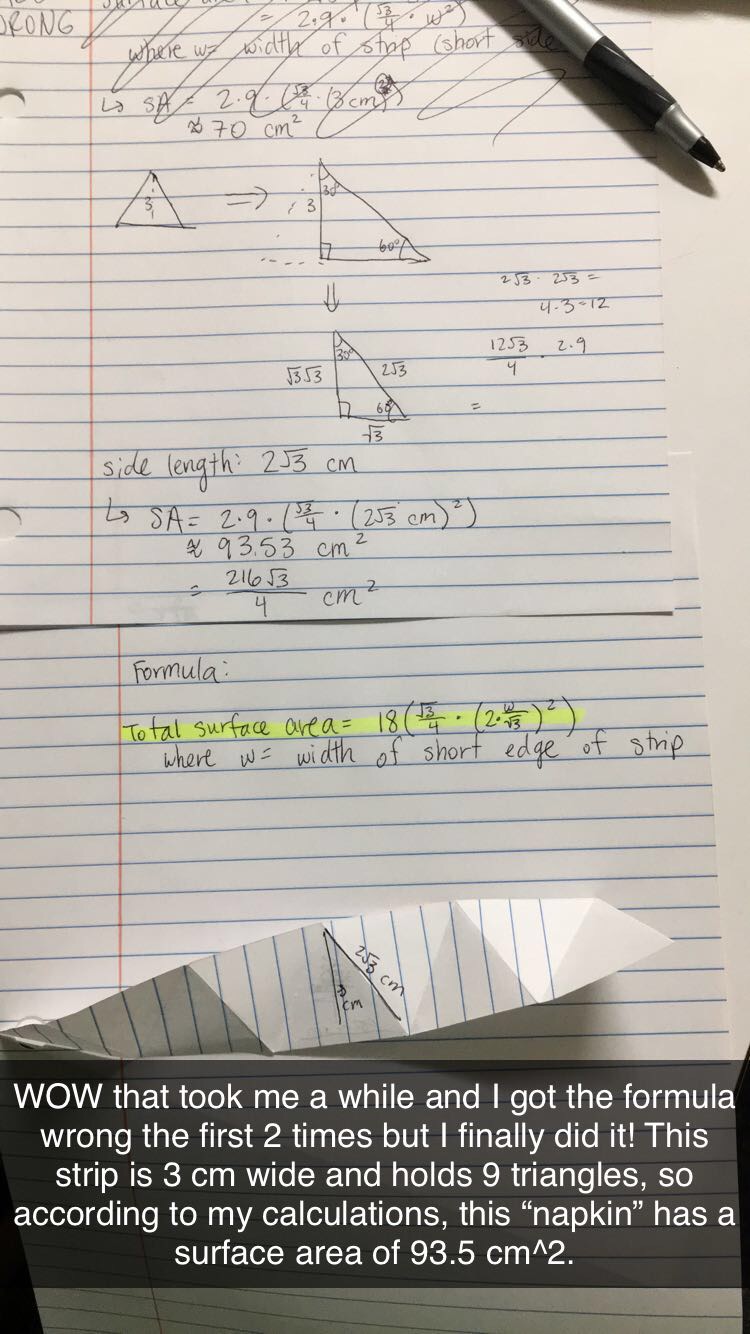 WRONG
= 2·9·(√3/4 · w²)
where w= width of strip (short side
↳ SA = 2·9·(√3/4 · (3cm)
≈ 70 cm²
3
30°
3
60°
2√3 · 2√3 =
4·3=12
30°
√3√3
2√3
60°
√3
12√3/4 · 2·9
=
side length: 2√3 cm
↳ SA= 2·9·(√3/4 · (2√3 cm)²)
≈ 93.53 cm²
= 216√3/4 cm²
Formula:
Total surface area= 18(√3/4 · (2·w/√3)²)
where w= width of short edge of strip
2√3 cm
3 cm
WOW that took me a while and I got the formula
wrong the first 2 times but I finally did it! This
strip is 3 cm wide and holds 9 triangles, so
according to my calculations, this “napkin” has a
surface area of 93.5 cm^2.